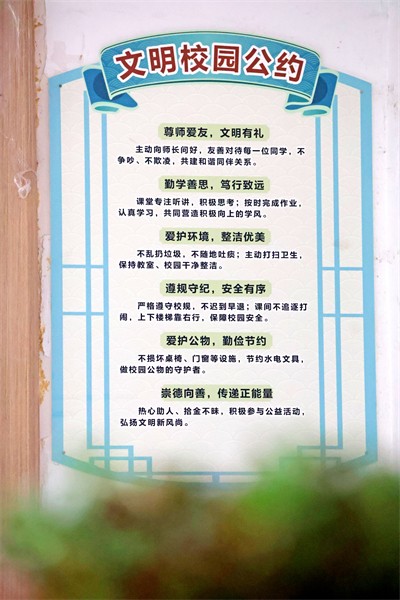 文明校园公约
尊师爱友，文明有礼
主动向师长问好，友善对待每一位同学，不
争吵、不欺凌，共建和谐同伴关系。
勤学善思，笃行致远
课堂专注听讲，积极思考；按时完成作业，
认真学习，共同营造积极向上的学风。
爱护环境，整洁优美
不乱扔垃圾，不随地吐痰；主动打扫卫生，
保持教室、校园干净整洁。
遵规守纪，安全有序
严格遵守校规，不迟到早退；课间不追逐打
闹，上下楼梯靠右行，保障校园安全。
爱护公物，勤俭节约
不损坏桌椅、门窗等设施，节约水电文具，
做校园公物的守护者。
崇德向善，传递正能量
热心助人、拾金不昧，积极参与公益活动，
弘扬文明新风尚。